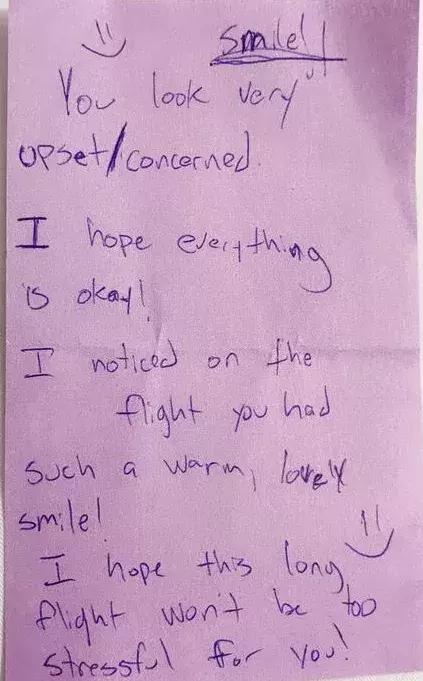 Smile!
You look very
upset/concerned.
I hope everything
is okay!
I noticed on the
flight you had
such a warm, lovely
smile!
I hope this long
flight won't be too
stressful for you!